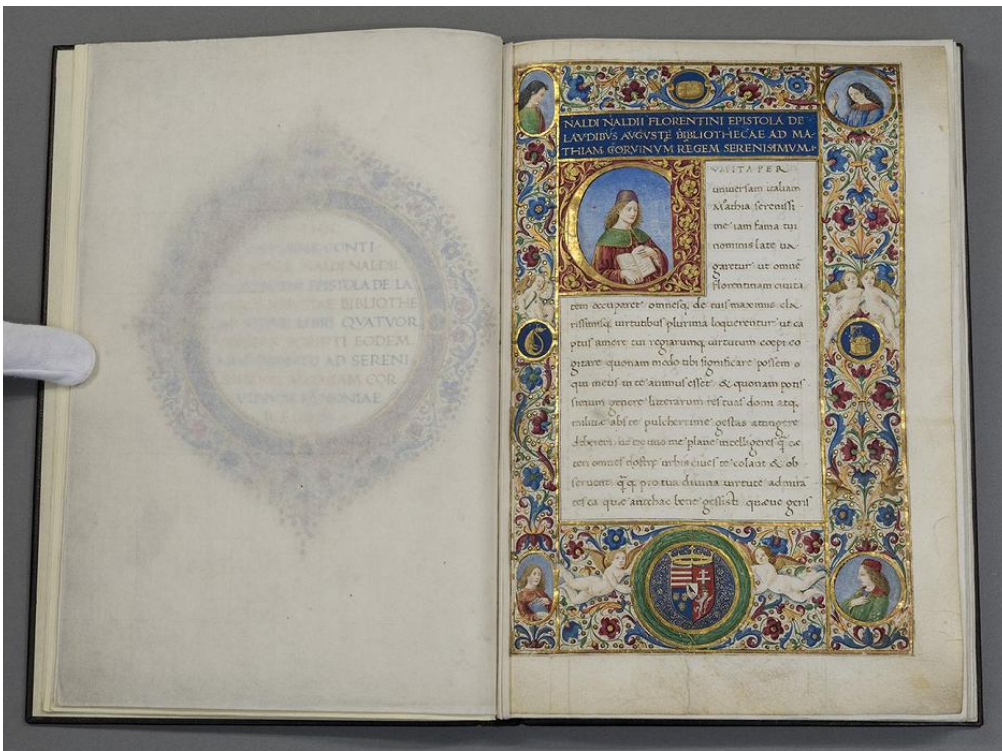 CONTI
NALDI NALDII
EPISTOLA DE LA
BIBLIOTHE
QVATVOR
EODEM
AD SERENI
COR
NALDI NALDII FLORENTINI EPISTOLA DE
LAVDIBVS AVGVSTE BIBLIOTHECAE AD MA
THIAM CORVINVM REGEM SERENISIMVM.
universam italiam
Mathia serenissi
me iam fama tui
nominis late va
garetur ut omnē
florentinam civita
tem occuparet omnesq, de tuis maximis cla
rissimisq, virtutibus plurima loquerentur ut ca
ptus amore tui regiarumq, virtutum coepi co
gitare quonam modo tibi significare possem
qui meus in te animus esset & quonam potis
simum genere litterarum res tuas domi atq,
militie abs te pulcherrime gestas attingere
deberem ut ex iis me plane intelligeres
teri omnes nostre urbis cives te colant & ob
servent pro tua divina virtute admira
tes ea que antehac bene gessisti queve geris